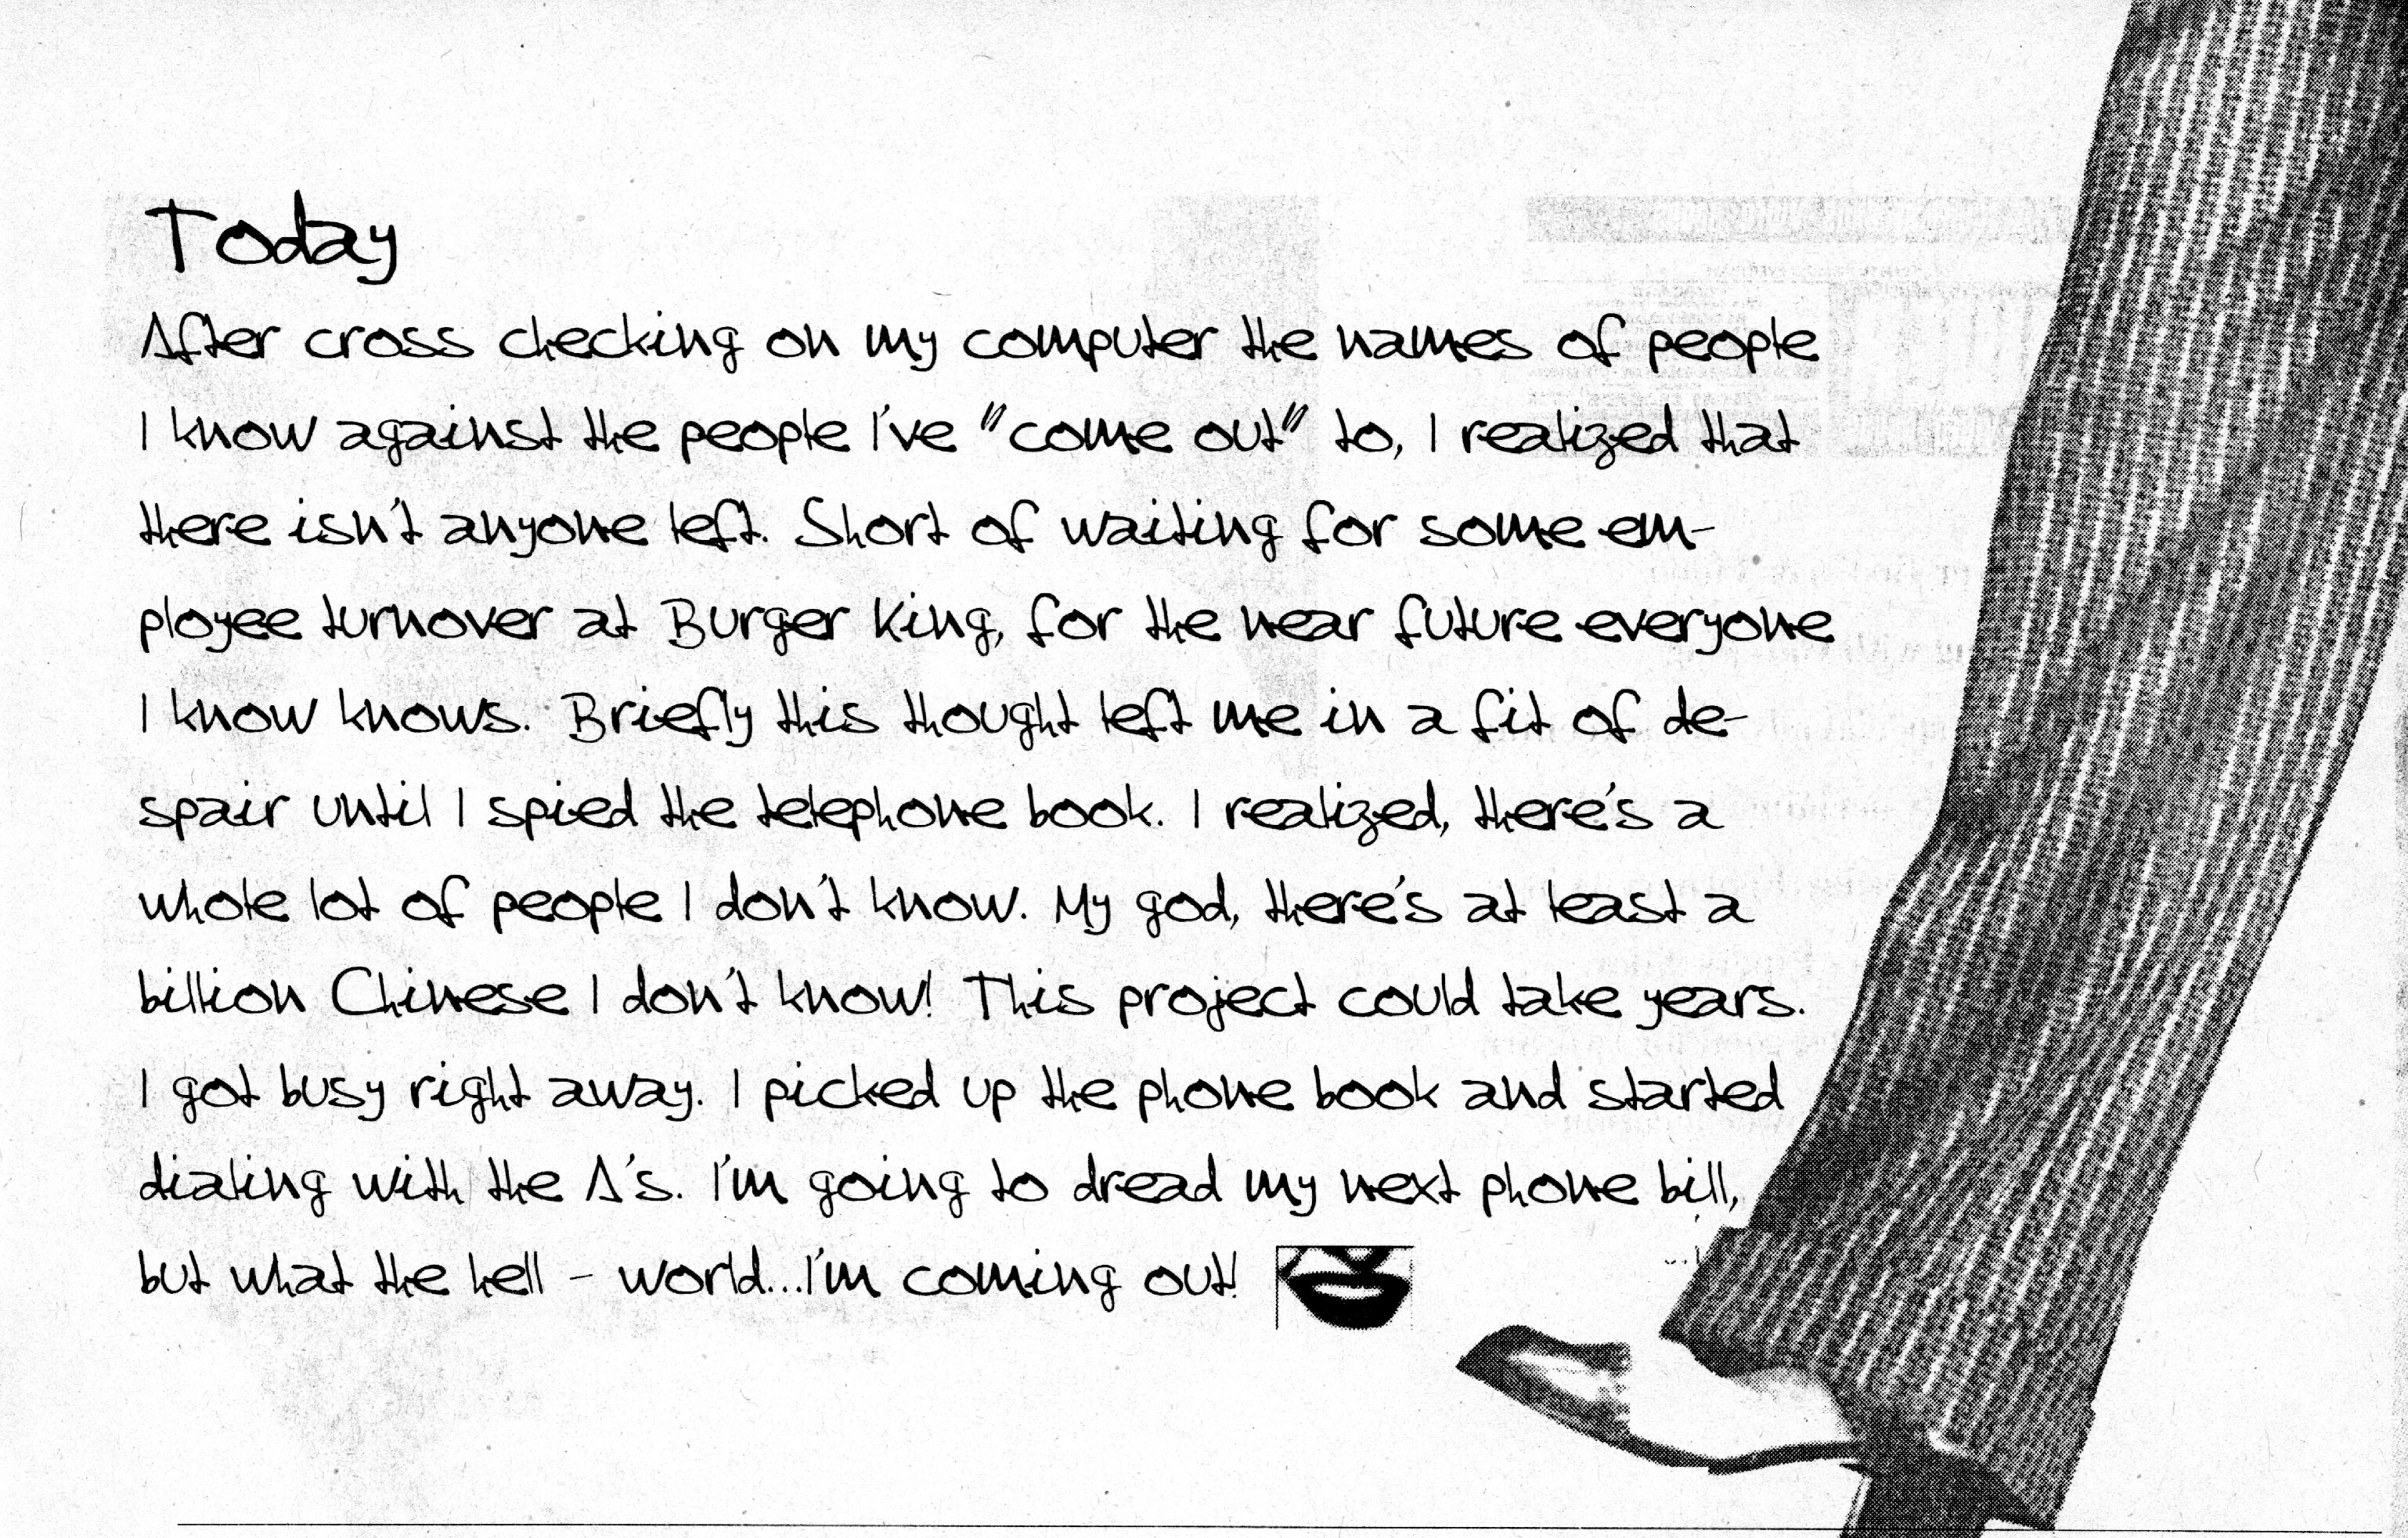 Today
After cross checking on my computer the names of people
I know against the people I've "come out" to, I realized that
there isn't anyone left. Short of waiting for some em-
ployee turnover at Burger King, for the near future everyone
I know knows. Briefly this thought left me in a fit of de-
spair until I spied the telephone book. I realized, there's a
whole lot of people I don't know. My god, there's at least a
billion Chinese I don't know! This project could take years.
I got busy right away. I picked up the phone book and started
dialing with the A's. I'm going to dread my next phone bill,
but what the hell - world...I'm coming out!